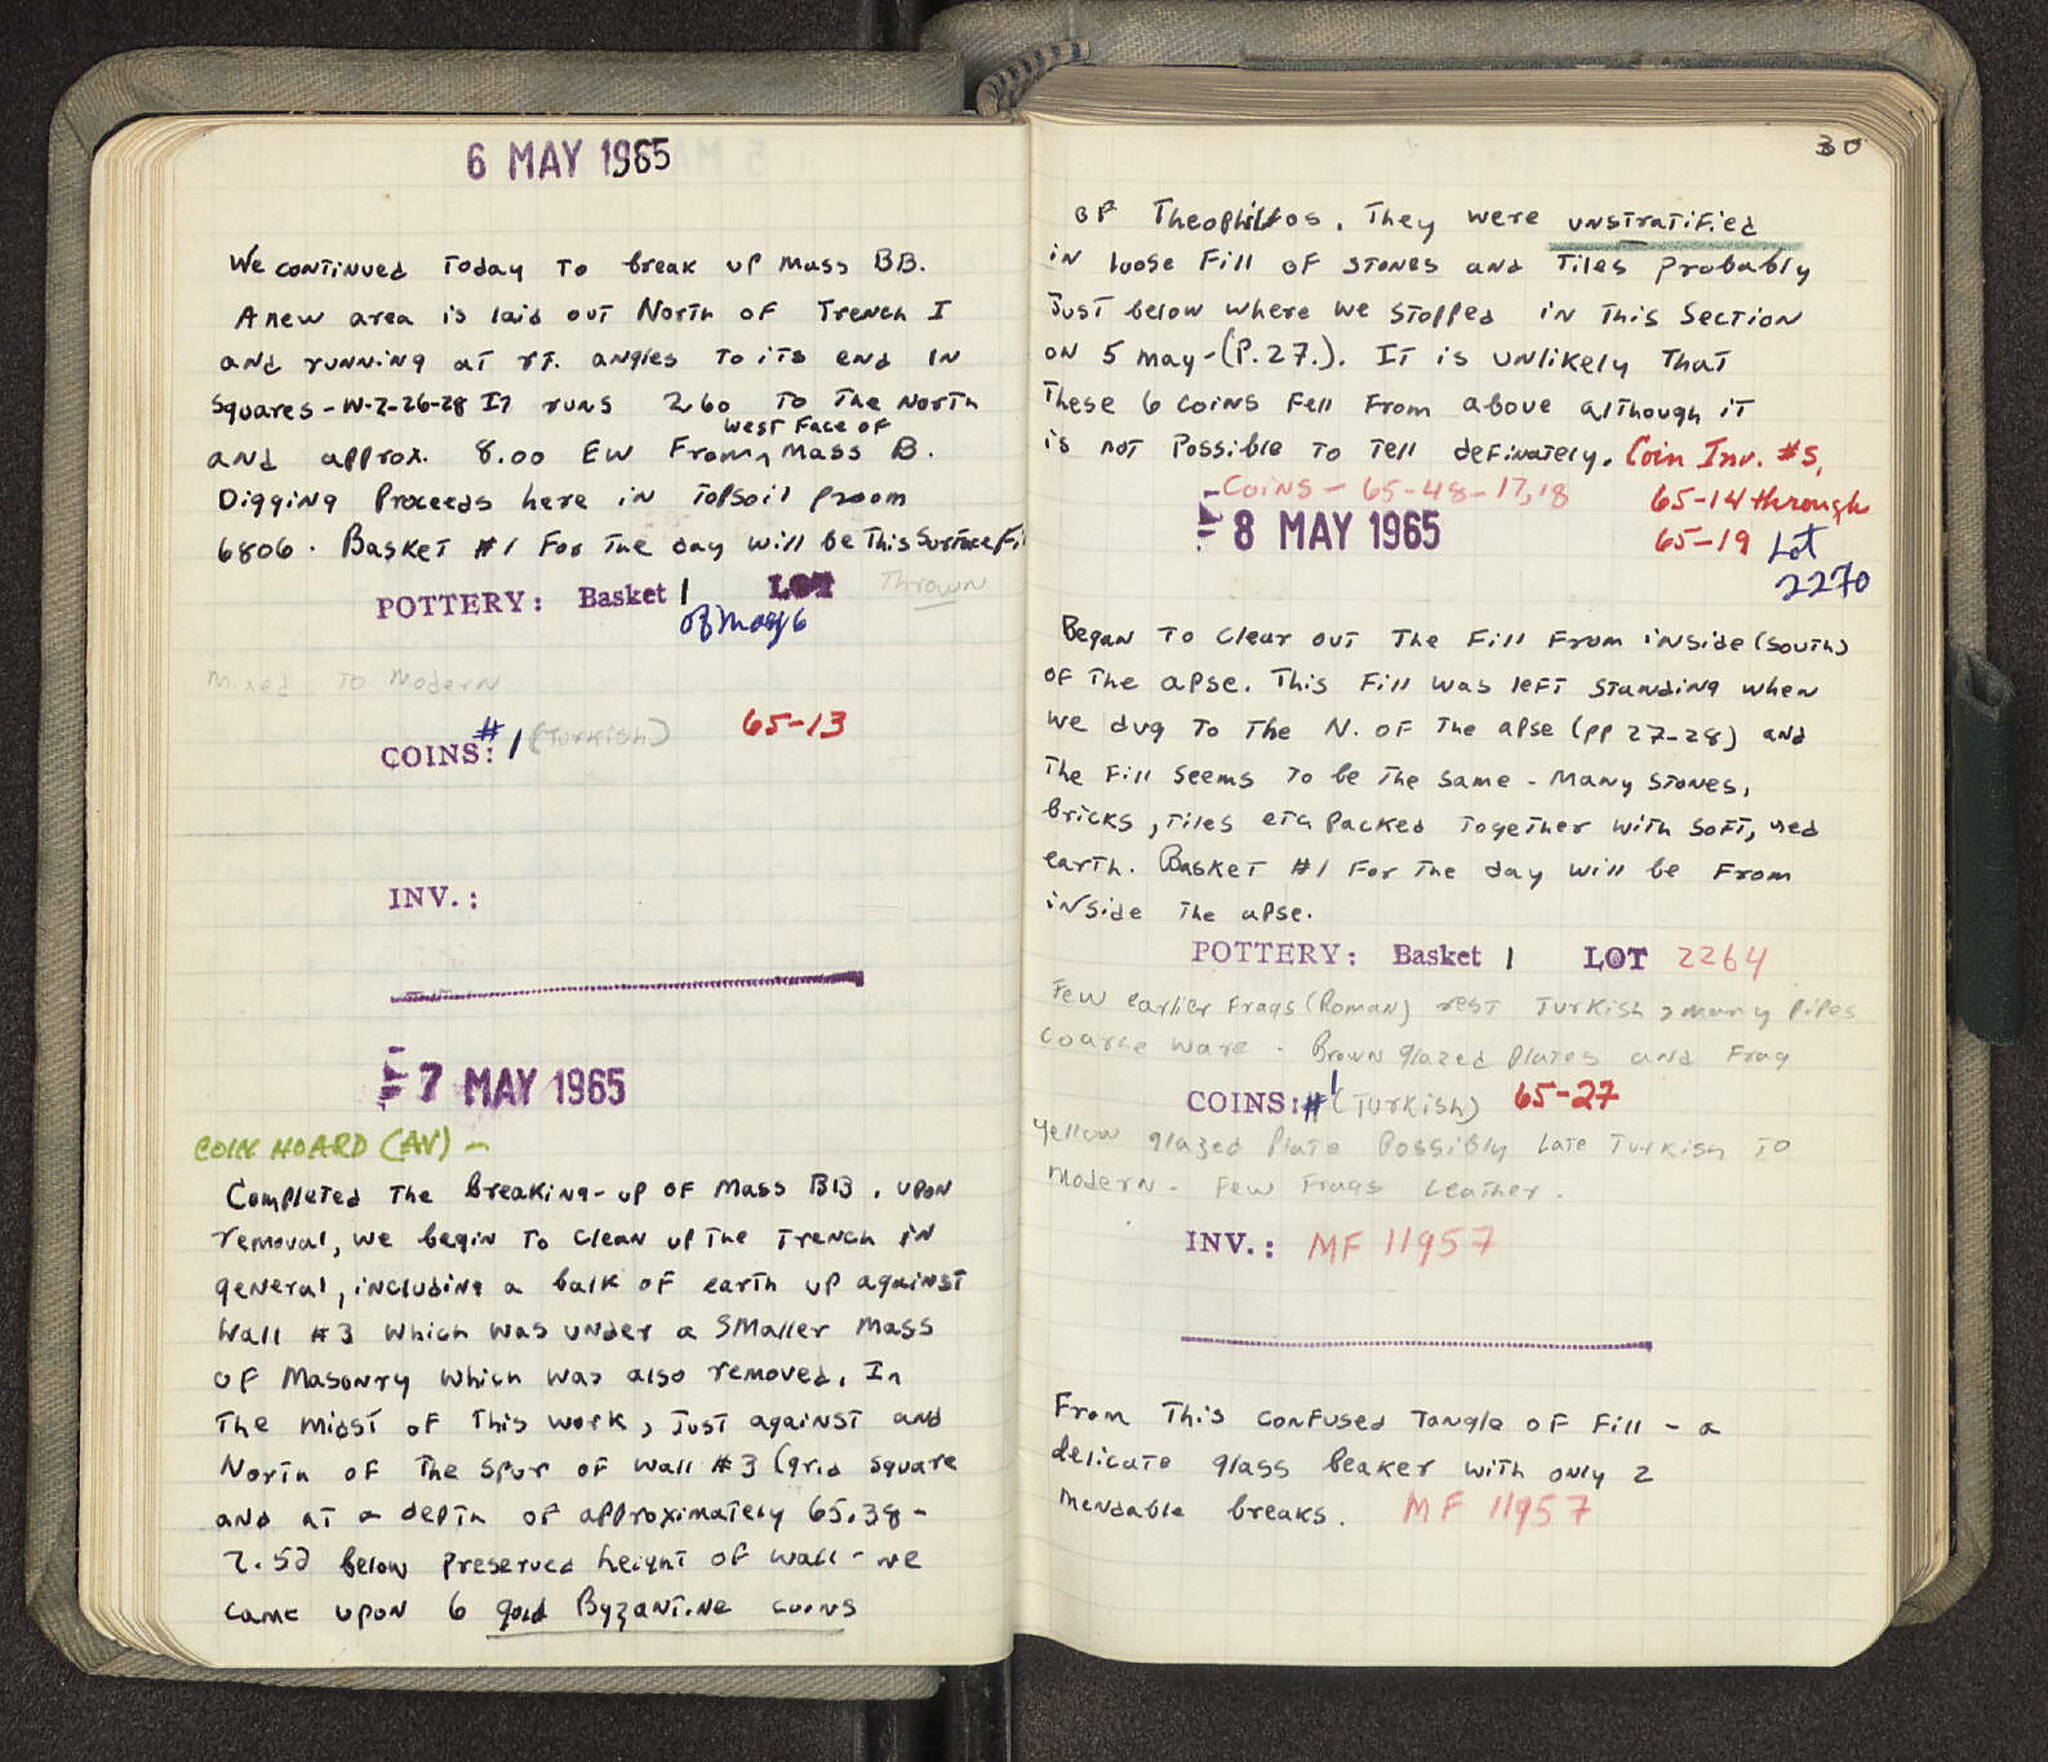 6 MAY 1965
We continued today to break up mass BB.
A new area is laid out North of Trench I
and running at rt. angles to its end in
squares - W-Z-26-28 It runs 260 to the North
west face of
and approx. 8.00 EW From ^ mass B.
Digging proceeds here in topsoil from
6806. Basket #1 For the day will be this surface fi
POTTERY: Basket 1 LOT Thrown
of May 6
Mixed to Modern
COINS: #1 (Turkish) 65-13
INV.:
7 MAY 1965
COIN HOARD (AV) -
Completed the breaking-up of mass BB. upon
removal, we begin to clean up the trench in
general, including a balk of earth up against
Wall #3 which was under a smaller mass
of masonry which was also removed. In
the midst of this work, just against and
North of the spur of wall #3 (grid square
and at a depth of approximately 65.38 -
2.52 below preserved height of wall - we
came upon 6 gold Byzantine coins
30
of Theophilos. They were unstratified
in loose fill of stones and tiles probably
just below where we stopped in this section
on 5 may - (P. 27.). It is unlikely that
these 6 coins fell from above although it
is not possible to tell definately. Coin Inv. #s,
Coins - 65-48-17,18 65-14 through
65-19 Lot
2270
8 MAY 1965
Began to clear out the fill from inside (south)
of the apse. This fill was left standing when
we dug to the N. of the apse (pp 27-28) and
the fill seems to be the same - many stones,
bricks, tiles etc. packed together with soft, red
earth. Basket #1 for the day will be from
inside the apse.
POTTERY: Basket 1 LOT 2264
Few earlier frags (Roman) rest Turkish, many pipes
coarse ware - Brown glazed plates and frag
COINS: #1 (Turkish) 65-27
yellow glazed plate possibly late Turkish to
modern - few frags leather.
INV.: MF 11957
From this confused tangle of fill - a
delicate glass beaker with only 2
mendable breaks. MF 11957